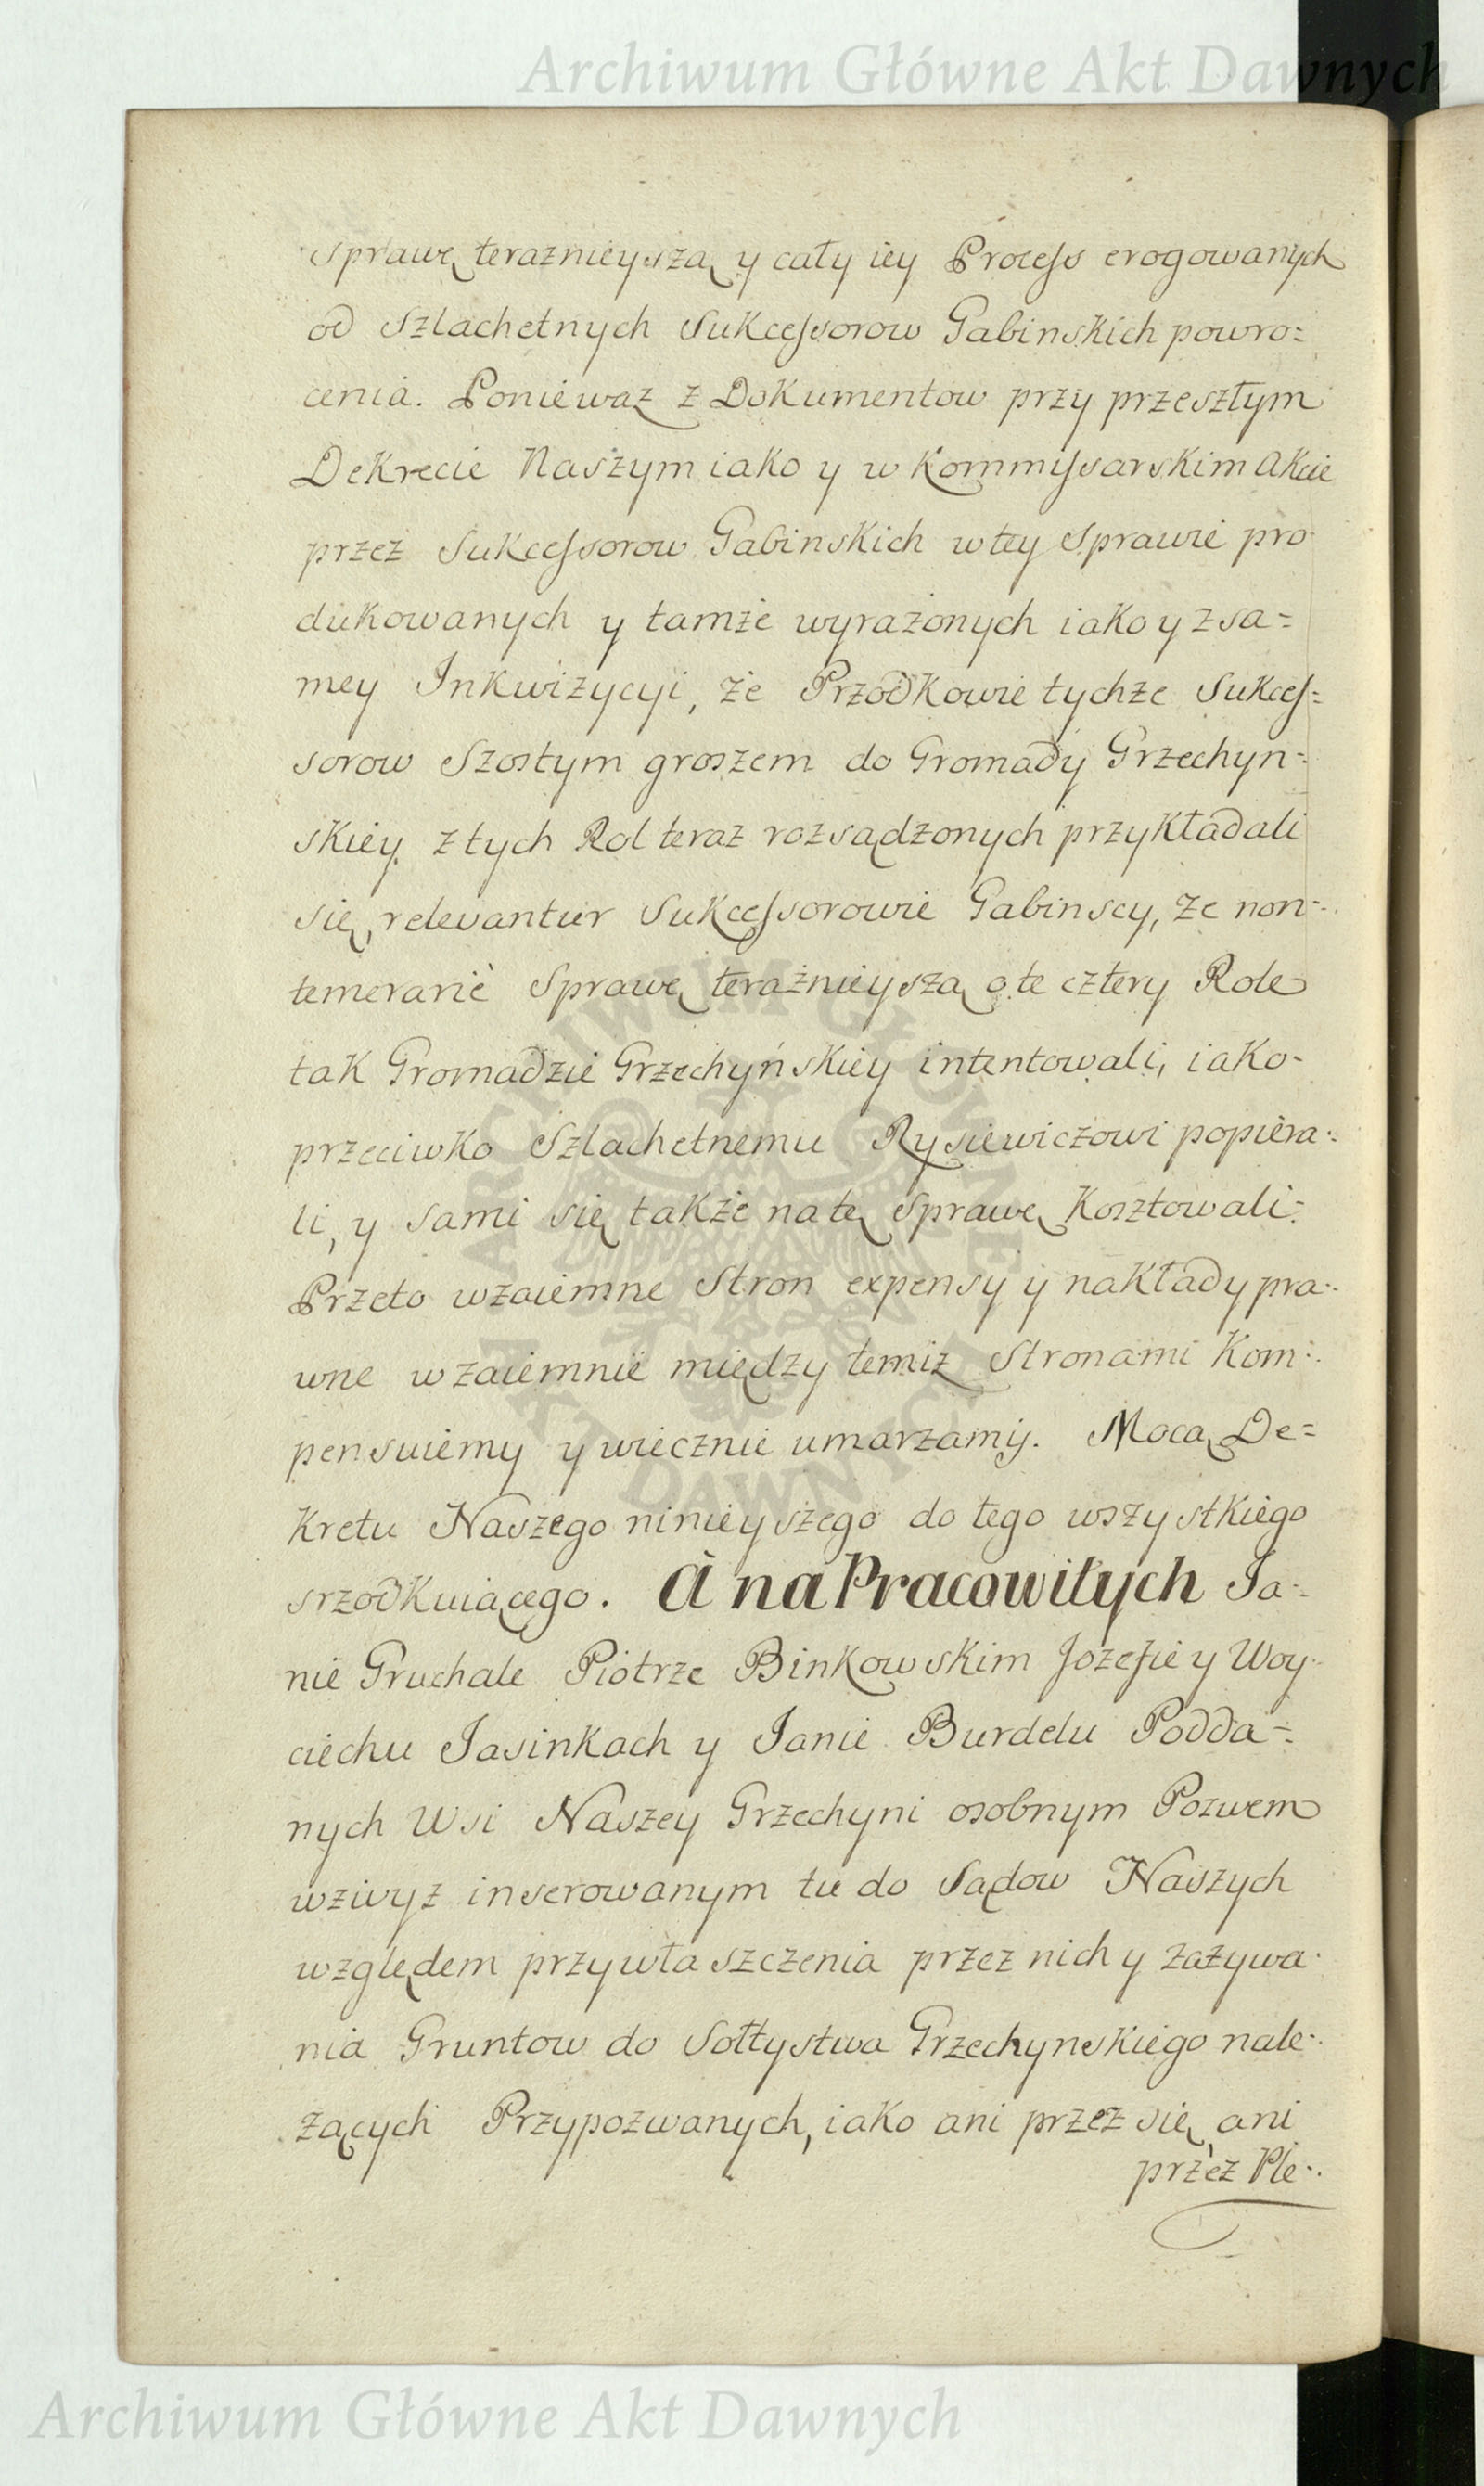 Archiwum Główne Akt Dawnych
sprawę teraznieyszą y cały iey Process erogowanych
od Szlachetnych Sukcessorow Gabinskich powro=
cenia. Poniewaz z Dokumentow przy przeszłym
Dekrecie Naszym iako y w Kommissarskim Akcie
przez Sukcessorow Gabinskich w tey Sprawie pro
dukowanych y tamże wyrażonych iako y z sa=
mey Inkwizycyi, że Przodkowie tychże Sukces=
sorow Szostym groszem do Gromady Grzechyn=
skiey z tych Rol teraz rozsądzonych przykładali
się, relevantur Sukcessorowie Gabinscy, że non=
temerariè Sprawę terażnieyszą o te cztery Role
tak Gromadzie Grzechyńskiey intentowali, iako-
przeciwko Szlachetnemu Rysiewiczowi popiera=
li, y sami się także na tę Sprawę Kosztowali.
Przeto wzaiemne Stron expensy y nakłady pra=
wne wzaiemnie między temiz Stronami Kom=
pensuiemy y wiecznie umarzamy. Mocą De=
kretu Naszego ninieyszego do tego wszystkiego
srzodkuiącego. A na Pracowitych Ja=
nie Gruchale Piotrze Binkowskim Jozefie y Woy=
ciechu Jasinkach y Janie Burdelu Podda=
nych Wsi Naszey Grzechyni osobnym Pozwem
wzwyż inserowanym tu do Sądow Naszych
względem przywłaszczenia przez nich y zażywa=
nia Gruntow do Sołtystwa Grzechynskiego nale=
żących Przypozwanych, iako ani przez się, ani
przez Ple=
ARCHIWUM GŁÓWNE
AKT DAWNYCH
Archiwum Główne Akt Dawnych